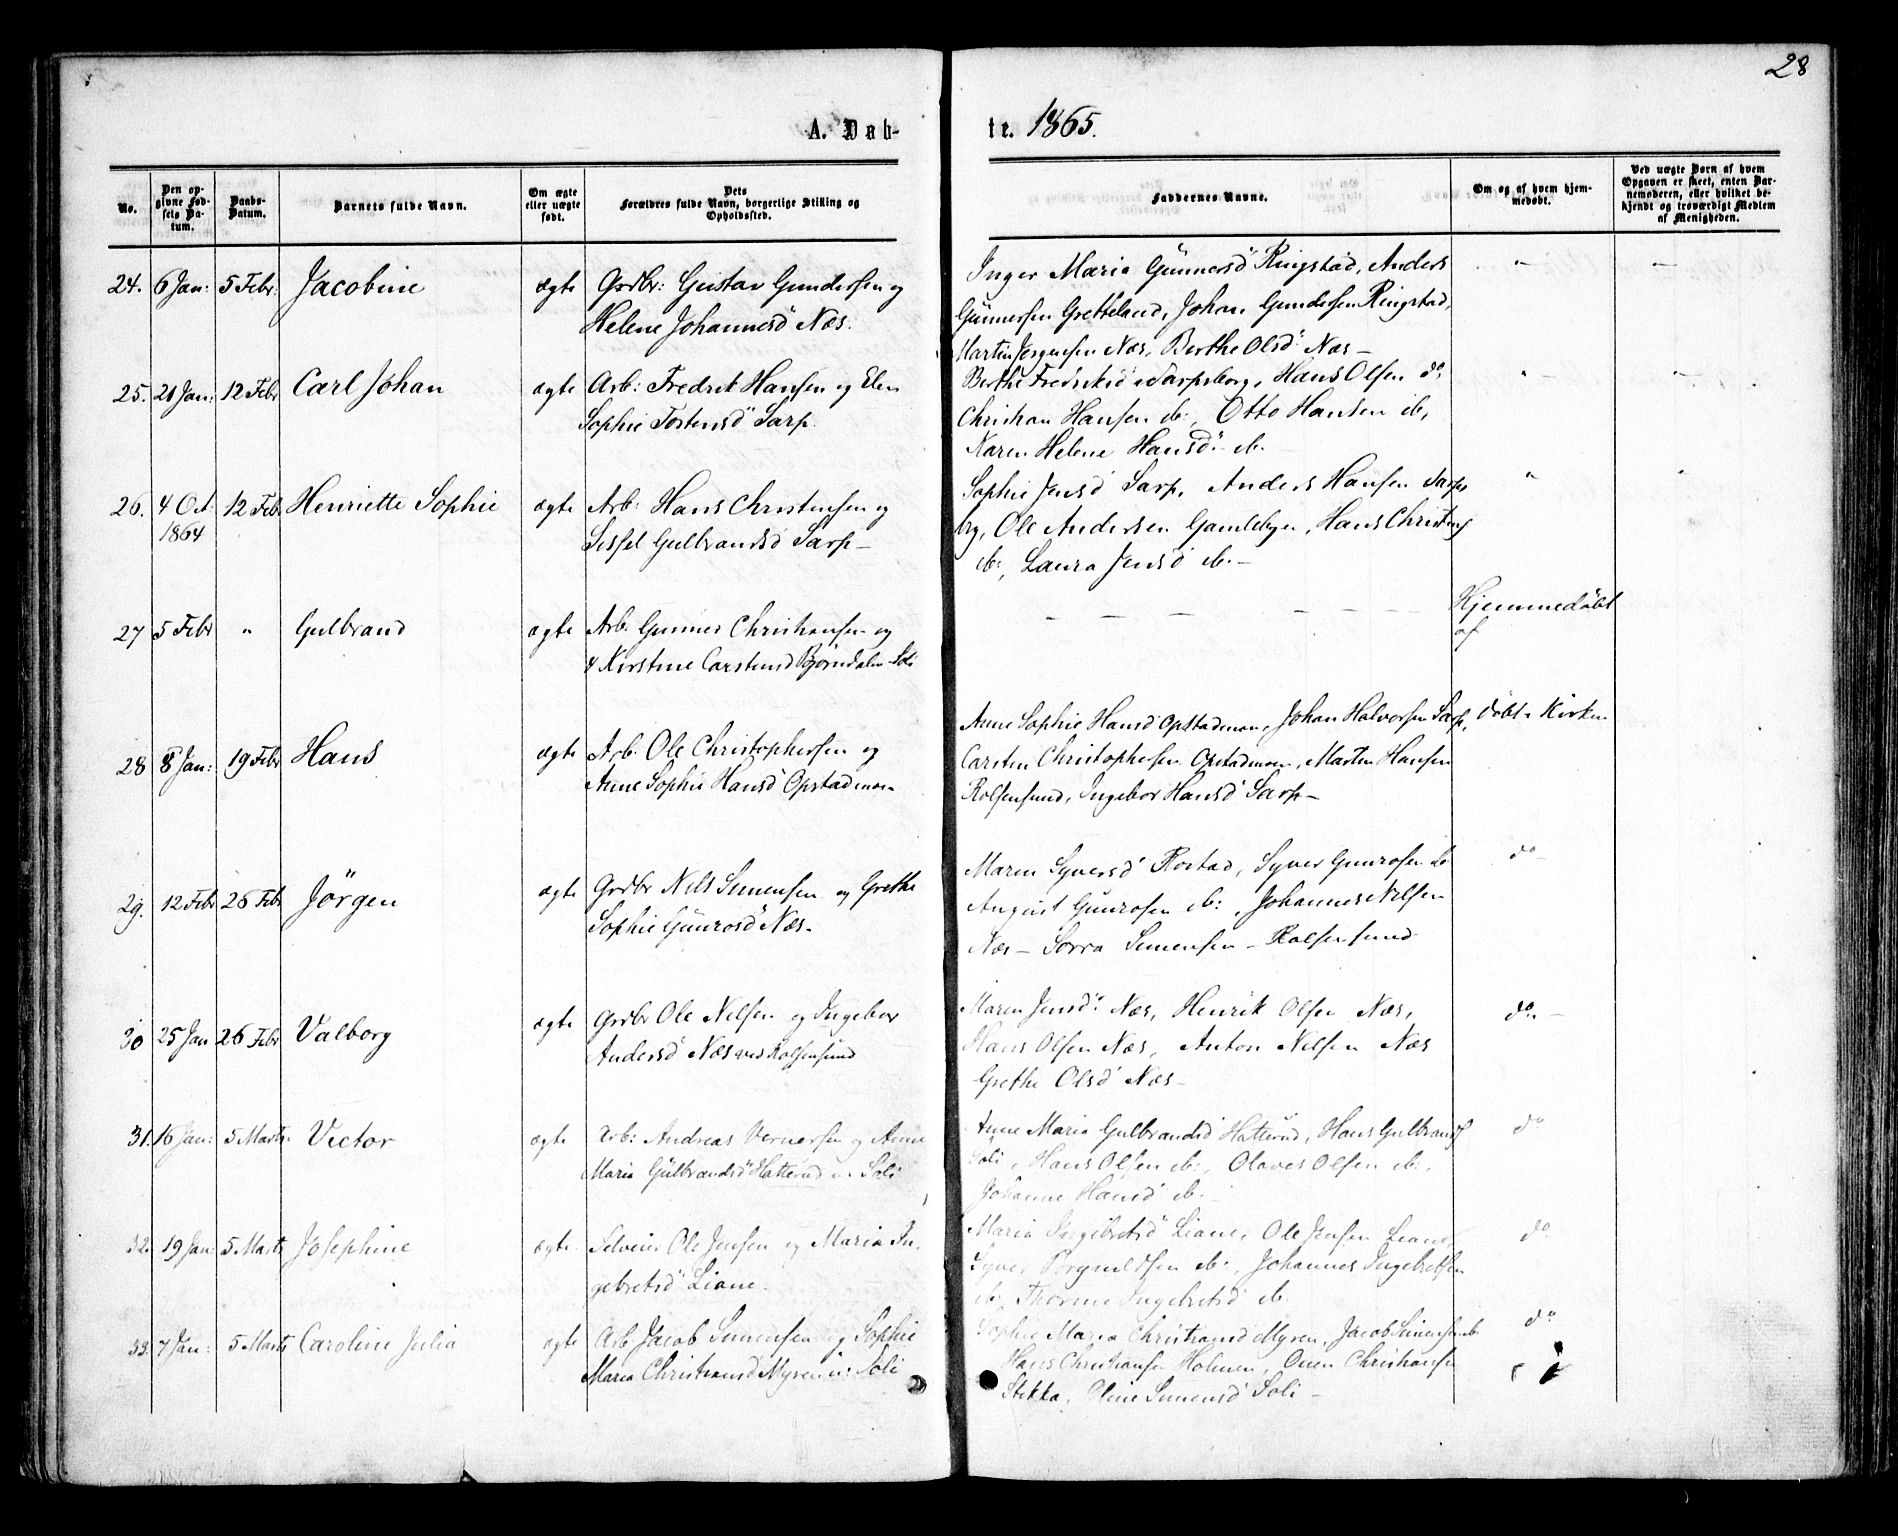 28
A. Døbte. 1865.
No.
Den opgivne Fødsels Datum.
Daabs-Datum.
Barnets fulde Navn.
Om ægte eller uægte født.
Dets Forældres fulde Navn, borgerlige Stilling og Opholdssted.
Faddernes Navne.
Om og af hvem hjemmedøbt.
Ved uægte Børn af hvem Opgaven er skeet, enten Barnemoderen, eller hvilket bekjendt og troværdigt Medlem af Menigheden.
24. 6 Jan: 5 Febr: Jacobine ægte Grdbr: Gustav Gundersen og
Helene Johannesd Næs.
Inger Marie Gunnersd Ringstad, Anders " "
Gunnersen Gretteland, Johan Gundersen Ringstad,
Martin Jørgensen Næs, Berthe Olsd Næs –
25. 20 Jan: 12 Febr Carl Johan ægte Arb: Fredrik Hansen og Elen
Sophie Tostensd Sarp.
Berthe Fredriksd Sarpsborg, Hans Olsen do " "
Christian Hansen ib:, Otto Hansen ib,
Karen Helene Hansd ib.
26. 4 Oct 1864 12 Feb Henriette Sophie ægte Arb: Hans Christensen og
Sissel Gulbrandsd Sarp –
Sophie Jensd Sarp, Anders Hansen Sarps " "
brg, Ole Andersen Gamlebyen, Hans Christens
ib:, Laura Jensd ib. –
27 5 Febr " Gulbrand ægte Arb. Gunner Christiansen og
Kirstine Carstensd Bjørndalen Soli
– – – – – – Hjemmedøbt
af
28 8 Jan: 19 Febr Hans ægte Arb. Ole Christophersen og
Anne Sophie Hansd Opstadmoen
Anne Sophie Hansd Opstadmoen, Johan Halvorsen Sarp, døbt i Kirken
Carsten Christophersen Opstadmoen, Martin Hansen
Rolfsøsund, Ingebor Hansd Sarp –
29. 12 Febr 26 Febr Jörgen ægte Grdbr Nils Simensen og Grethe
Sophie Gunrosd Næs –
Maren Syversd Rostad, Syver Gunrosen ib do –
August Gunrosen ib:, Johannes Nilsen
Næs – Simensen – Rolfsøsund
30 25 Jan 26 Febr Valborg ægte Grdbr Ole Nilsen og Ingebor
Andersd Næs ved Rolfsøsund
Maren Jensd Næs, Henrik Olsen Næs, do –
Hans Olsen Næs, Anton Nilsen Næs
Grethe Olsd Næs –
31. 16 Jan: 5 Marts Victor ægte Arb: Andreas Vernersen og Anne
Maria Gulbrandsd Hatterud u. Soli
Anne Maria Gulbrandsd Hatterud, Hans Gulbrands do
Soli, Hans Olsen ib:, Olaves Olsen ib:,
Johanne Hansd ib. –
32. 19 Jan: 5 Marts Josephine ægte Selveier Ole Jensen og Maria In-
gebretsd Liane.
Maria Ingebretsd Liane, Ole Jensen Liane do
Syver ib:, Johannes Ingebretsen
ib: Ingebretsd ib.
33. 7 Jan: 5 Marts Caroline Julia ægte Arb: Jacob Simensen og Sophie
Maria Christiansd Myren u: Soli
Sophie Maria Christiansd Myren, Jacob Simensen ib do
Hans Christiansen Holmen, Christiansen
Stikka, Oline Simensd Soli –